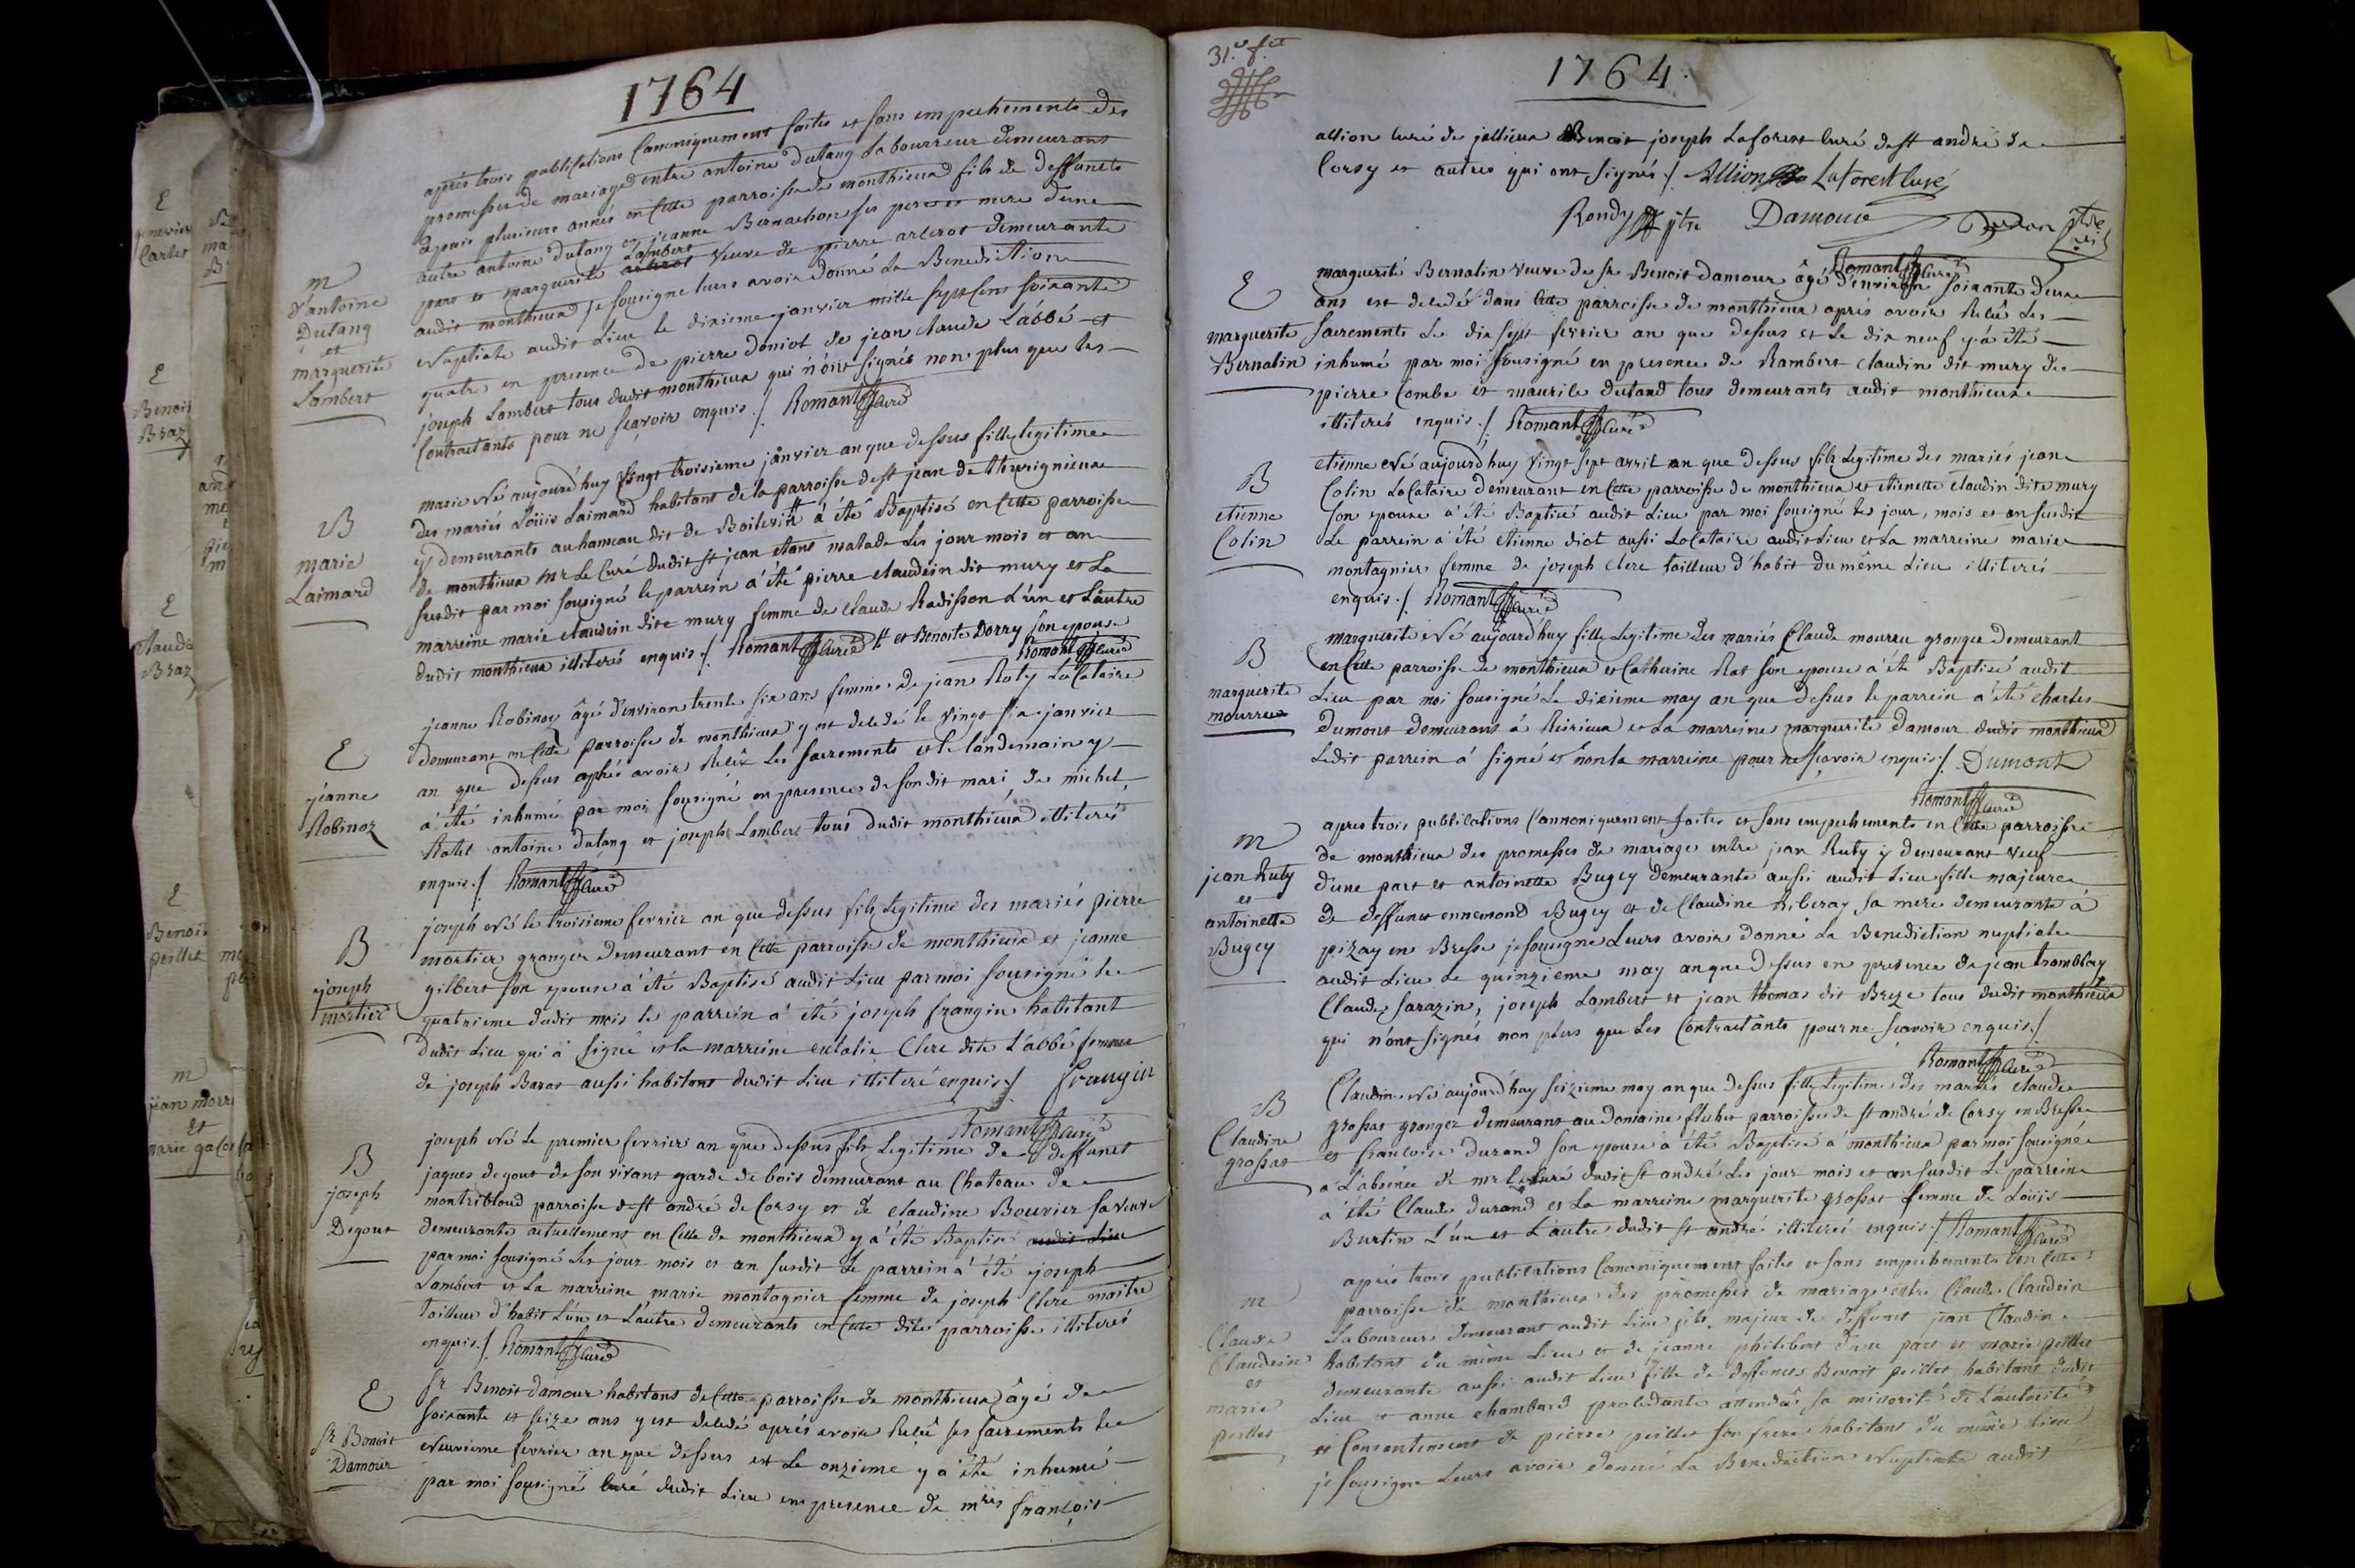 1764
après trois publications Canoniquement faites et sans empechements des
promesses de mariage entre antoine dutang Laboureur demeurant
depuis plusieurs annés en Cette parroisse de monthieux fils de deffunets
autre antoine dutang et jeanne Bernachon ses pere et mere d'une
part et marguerite Lambert veuve de pierre arcerot demeurante
audit monthieux je sousigne leurs avoir donné La Benediction
Nuptiale audit Lieu le dixieme janvier mille sept Cent soixante
quatre en presence de pierre doniot de jean claude L'abbé et
joseph Lambert tous dudit monthieux qui n'ont signés non plus que les
Contractants pour ne sçavoir enquis ./. Romant Curé
m
d'antoine
Dutang
et
marguerite
Lambert
marie Né aujourd'huy vingt troisieme janvier an que dessus fille legitime
des mariés Loüis Laimard habitant de la parroisse de st jean de thurignieux
y demeurants au hameau dit de Boilesin # à été Baptisé en Cette parroisse
de monthieux Mr Le Curé dudit st jean etant malade Les jour mois et an
susdit par moi sousigné le parrein à été pierre claudein dit mury et La
marreine marie claudein dite mury femme de claude Radisson L'ün et L'autre
dudit monthieux illiterés enquis ./. Romant Curé # et Benoite Dorry son epouse
Romant Curé
B
marie
Laimard
jeanne Robinoz âgé d'environ trente six ans femme de jean Ruty LoCataire
demeurant en Cette parroisse de monthieux y est decedé le vingt six janvier
an que dessus après avoir Reçû Les sacrements et le landemain y
à été inhumé par moi sousigné en presence de sondit mari, de michel
Ratet antoine dutang et joseph Lambert tous dudit monthieux illiterés
enquis ./. Romant Curé
E
jeanne
Robinoz
joseph Né le troisieme fevrier an que dessus fils Legitime des mariés pierre
mortier granger demeurant en Cette parroisse de monthieux et jeanne
gilbert son epouse à été Baptisé audit Lieu par moi sousigné le
quatrieme dudit mois le parrein à été joseph frangin habitant
dudit Lieu qui à signé et la marreine eulalie Clerc dite L'abbé femme
de joseph Barat aussi habitant dudit Lieu illiteré enquis ./. frangin
Romant Curé
B
joseph
mortier
joseph Né Le premier fevrier an que dessus fils Legitime de deffunct
jaques degout de son vivant garde de bois demeurant au Chateau de
montribloud parroisse de st andré de Corsy et de claudine Bouvier sa veuve
demeurante actuellement en Celle de monthieux y à été Baptisé audit Lieu
par moi sousigné Les jour mois et an susdit Le parrein à été joseph
Lambert et La marreine marie montagnier femme de joseph Clerc maitre
tailleur d'habit L'ün et L'autre demeurants en Cette dite parroisse illiterés
enquis ./. Romant Curé
B
joseph
Degout
Sr Benoit damour habitant de Cette parroisse de monthieux âgé de
soixante et seize ans y est decedé après avoir Reçû ses sacrements le
Neuvieme fevrier an que dessus et Le onzieme y à été inhumé
par moi sousigné Curé dudit Lieu en presence de mres françois
E
Sr Benoit
Damour
31e ft
1764.
allion Curé de jallieux Benoit joseph Laforest Curé de st andré de
Corsy et autres qui ont signés ./. Allion Laforest Curé
Rondy ptre Damour
Romant Curé
marguerite Bernalin veuve de Sr Benoit damour âgé d'environ soixante deux
ans est decedé dans Cette parroisse de monthieux après avoir Reçû Les
sacrements Le dix sept fevrier an que dessus et Le dix neuf y à été
inhumé par moi sousigné en presence de Rambert claudin dit mury de
pierre Combe et maurile dutand tous demeurants audit monthieux
illiterés enquis ./. Romant Curé
E
marguerite
Bernalin
etienne Né aujourd'huy vingt sept avril an que dessus fils Legitime des mariés jean
Colin LoCataire demeurant en Cette parroisse de monthieux et etienette claudin dite mury
son epouse à été Baptisé audit Lieu par moi sousigné les jour, mois et an susdit
Le parrein à été etienne diot aussi LoCataire audit Lieu et La marreine marie
montagnier femme de joseph Clerc tailleur d'habit du même Lieu illiterés
enquis ./. Romant Curé
B
etienne
Colin
marguerite Né aujourd'huy fille Legitime des mariés Claude mourru granger demeurant
en Cette parroisse de monthieux et Catherine Rat son epouse à été Baptisé audit
Lieu par moi sousigné Le dixieme may an que dessus le parrein à été charles
Dumont demeurant à Reirieux et La marreine marguerite damour dudit monthieux
Ledit parrein à signé et non la marreine pour ne sçavoir enquis ./. Dumont
Romant Curé
B
marguerite
mourru
apres trois publications Cannoniquement faites et sans empechements en Cette parroisse
de monthieux des promesses de mariage entre jean Ruty y demeurant veuf
d'une part et antoinette Bugey demeurante aussi audit Lieu fille majeure
de deffunct ennemond Bugey et de Claudine Riberay sa mere demeurante à
pizay en Bresse je sousigne Leurs avoir donné La Benediction nuptiale
audit Lieu Le quinzieme may an que dessus en presence de jean tramblay
Claude sarazin, joseph Lambert et jean thomas dit Breze tous dudit monthieux
qui n'ont signés non plus que Les Contractants pour ne sçavoir enquis ./.
Romant Curé
m
jean Ruty
et
antoinette
Bugey
Claudine Né aujourd'huy seizieme may an que dessus fille Legitime des mariés claude
grossat granger demeurant au Domaine fluchet parroisse de st andré de Corsy en Bresse
et françoise durand son epouse à été Baptisé à monthieux par moi sousigné
à L'absence de mr Le Curé dudit st andré Les jour mois et an susdit Le parrein
à été Claude durand et La marreine marguerite grossat femme de Loüis
Burtin L'ün et L'autre dudit st andré illiterés enquis ./. Romant Curé
B
Claudine
grossat
après trois publications Canoniquement faites et sans empechements en Cette
parroisse de monthieux des promesses de mariage entre Claude Claudein
Laboureur demeurant audit Lieu fils majeur de deffunct jean Claudin
habitant du même Lieu et de jeanne philibert d'une part et marie peillet
demeurante aussi audit Lieu fille de deffuncts Benoit peillet habitant dudit
Lieu et anne chambard procedante attendû sa minorité de L'autorité
et Consentement de pierre peillet son frere habitant du même Lieu
je sousigne Leurs avoir donné La Benediction Nuptiale audit
m
Claude
Claudein
et
marie
peillet